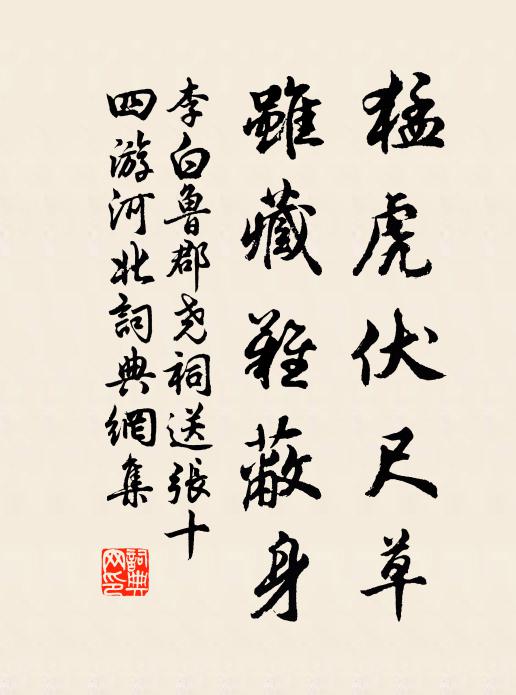 猛虎伏尺草
雖藏難蔽身
李白魯郡尧祠送張十
四游河北詞典網集
詞典
网印